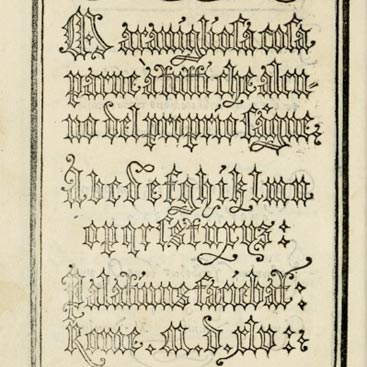 Marauigliosa cosa
parue à tutti che alcu-
no del proprio sãgue:
Abcdefghiklmn
opqrsſtuxyz:
Palatinus faciebat:
Rome. M. d. xlv::